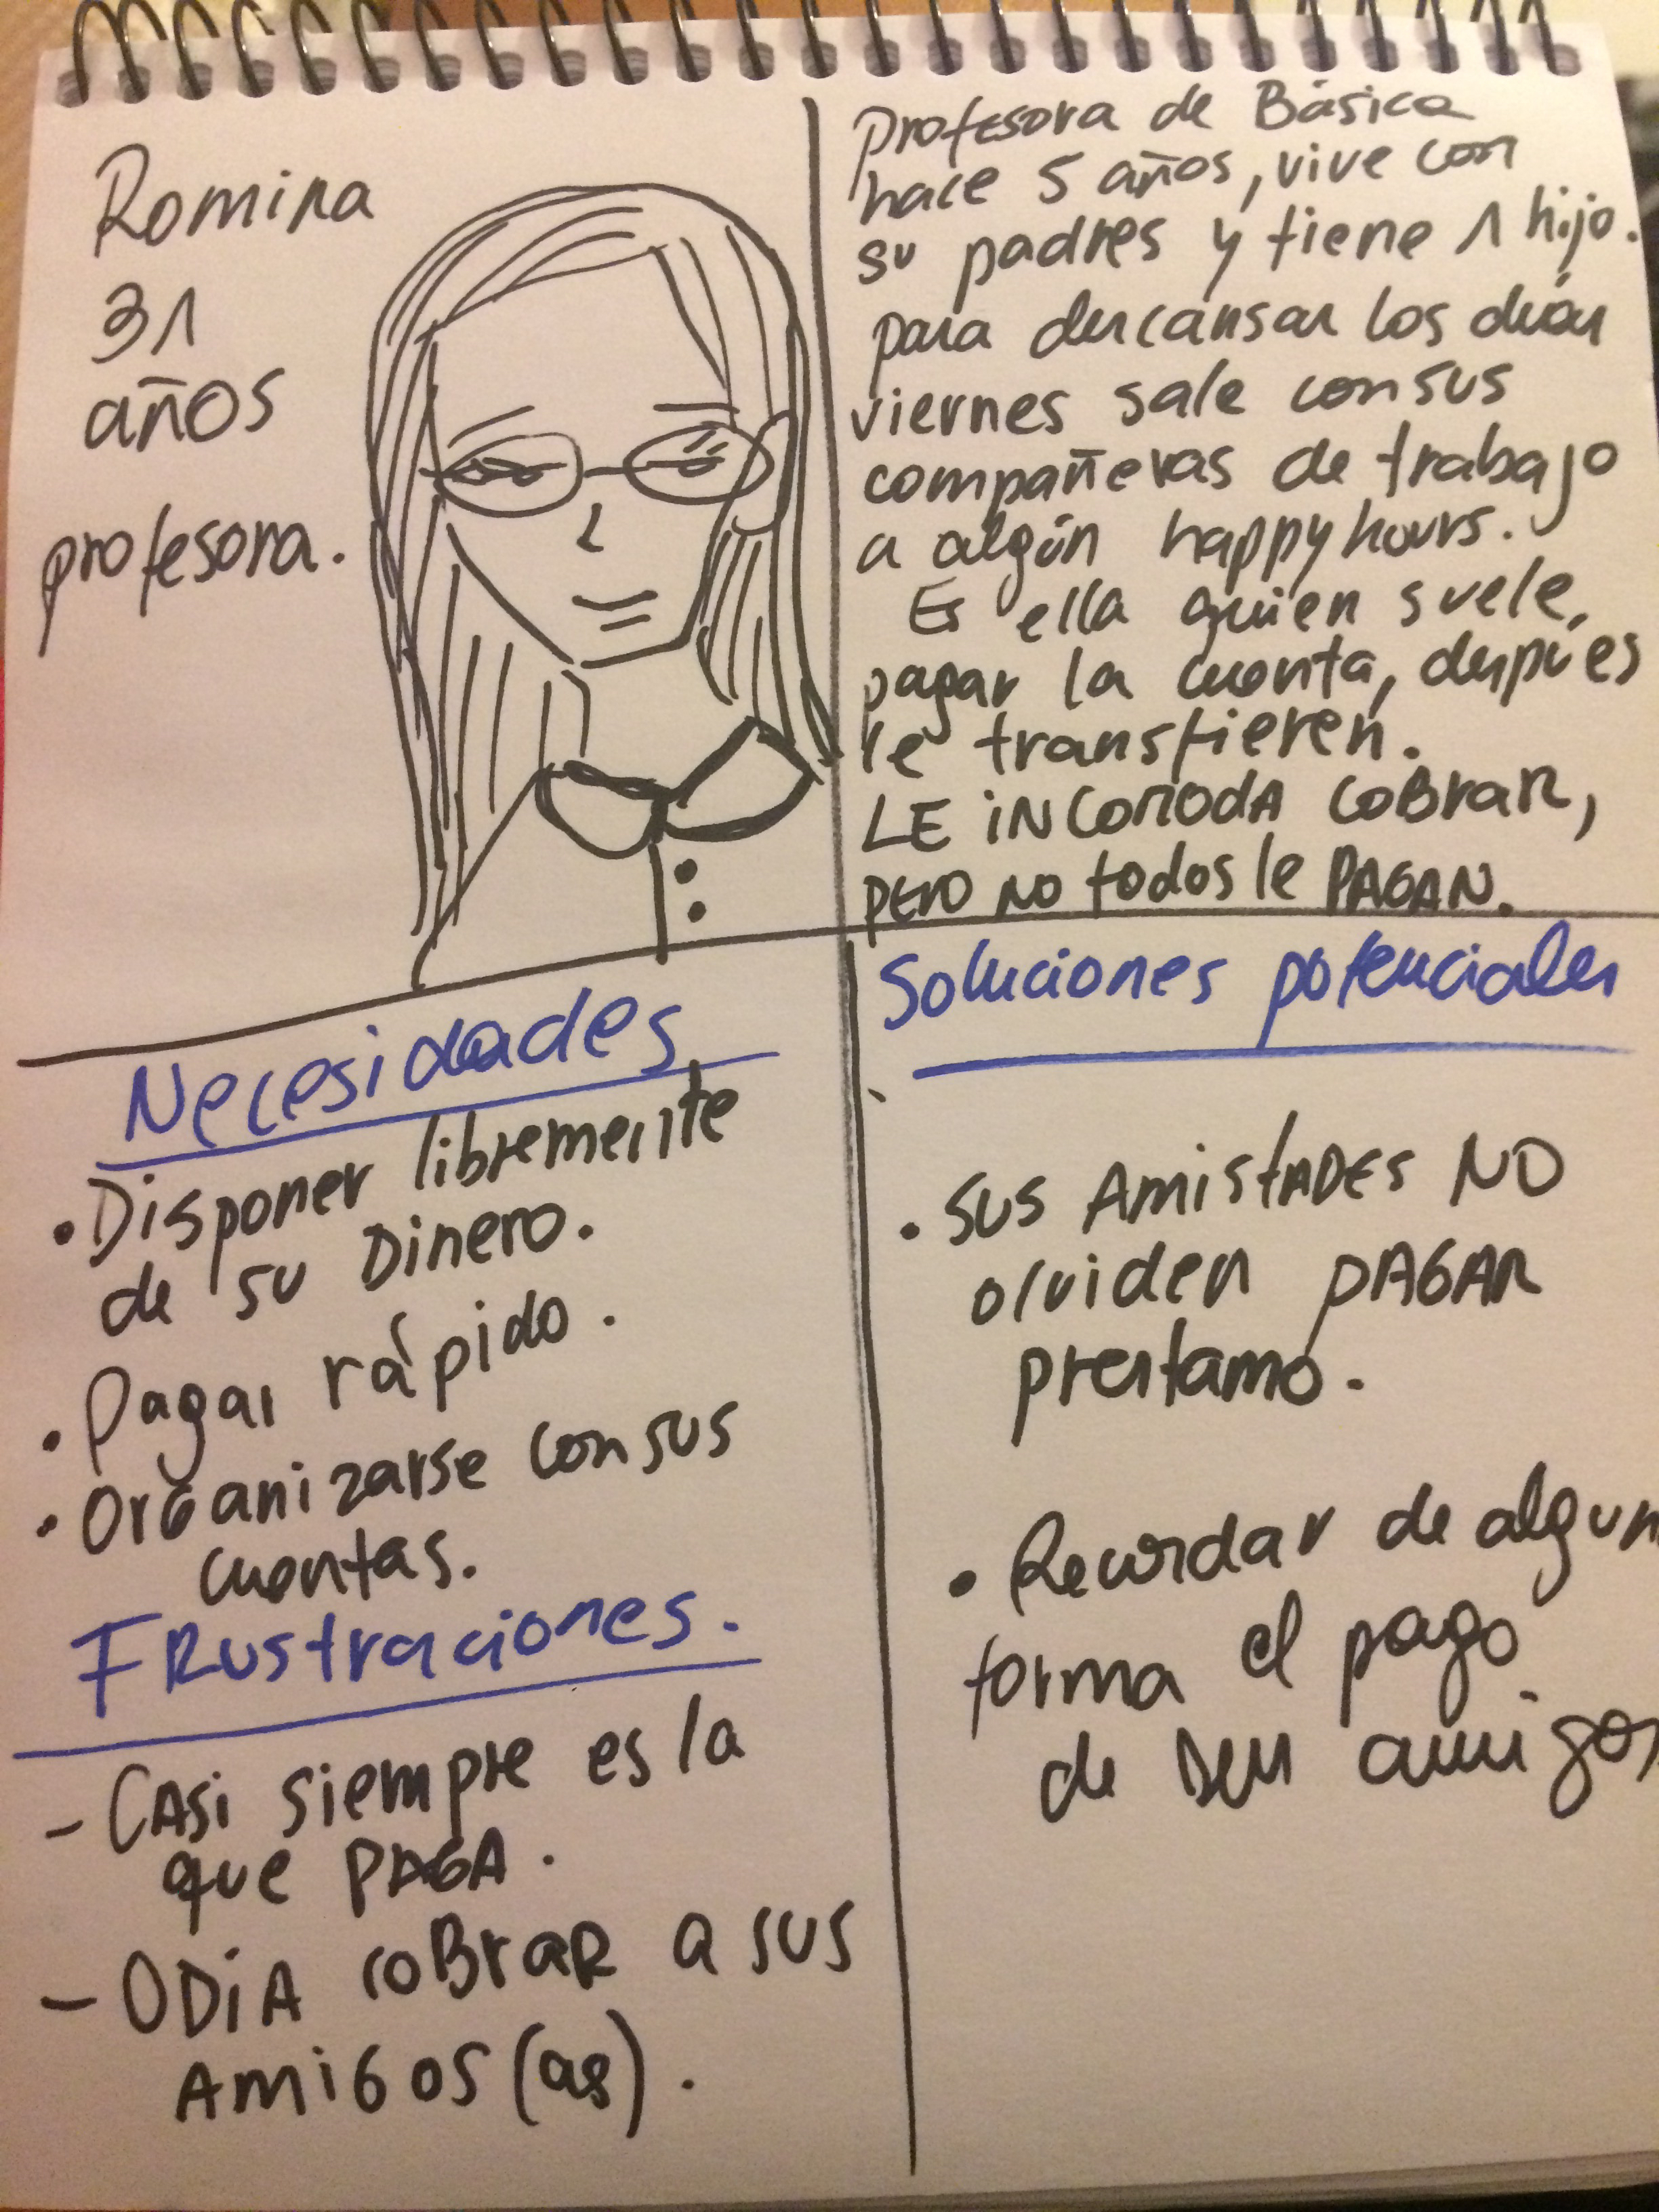 Romina
31
años
profesora.
Profesora de Básica
hace 5 años, vive con
su padres y tiene 1 hijo.
para descansar los días
viernes sale con sus
compañeras de trabajo
a algún happy hours.
Es ella quien suele
pagar la cuenta, después
le transfieren.
LE iNCOMODA COBRAR,
PERO NO todos le PAGAN.
Necesidades
• Disponer libremente
de su Dinero.
• Pagar rápido.
• Organizarse con sus
cuentas.
FRustraciones.
- CAsi siempre es la
que PAGA.
- ODiA coBraR a sus
AmiGos (as).
Soluciones potenciales
• SUS AmistADES NO
olviden PAGAR
prestamo.
• Recordar de algun
forma el pago
de sus amigos